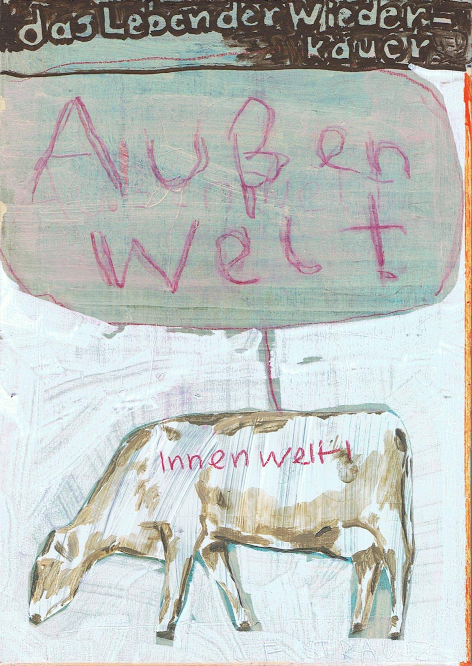 das Leben der Wieder-
käuer
Außen
welt
Innenwelt